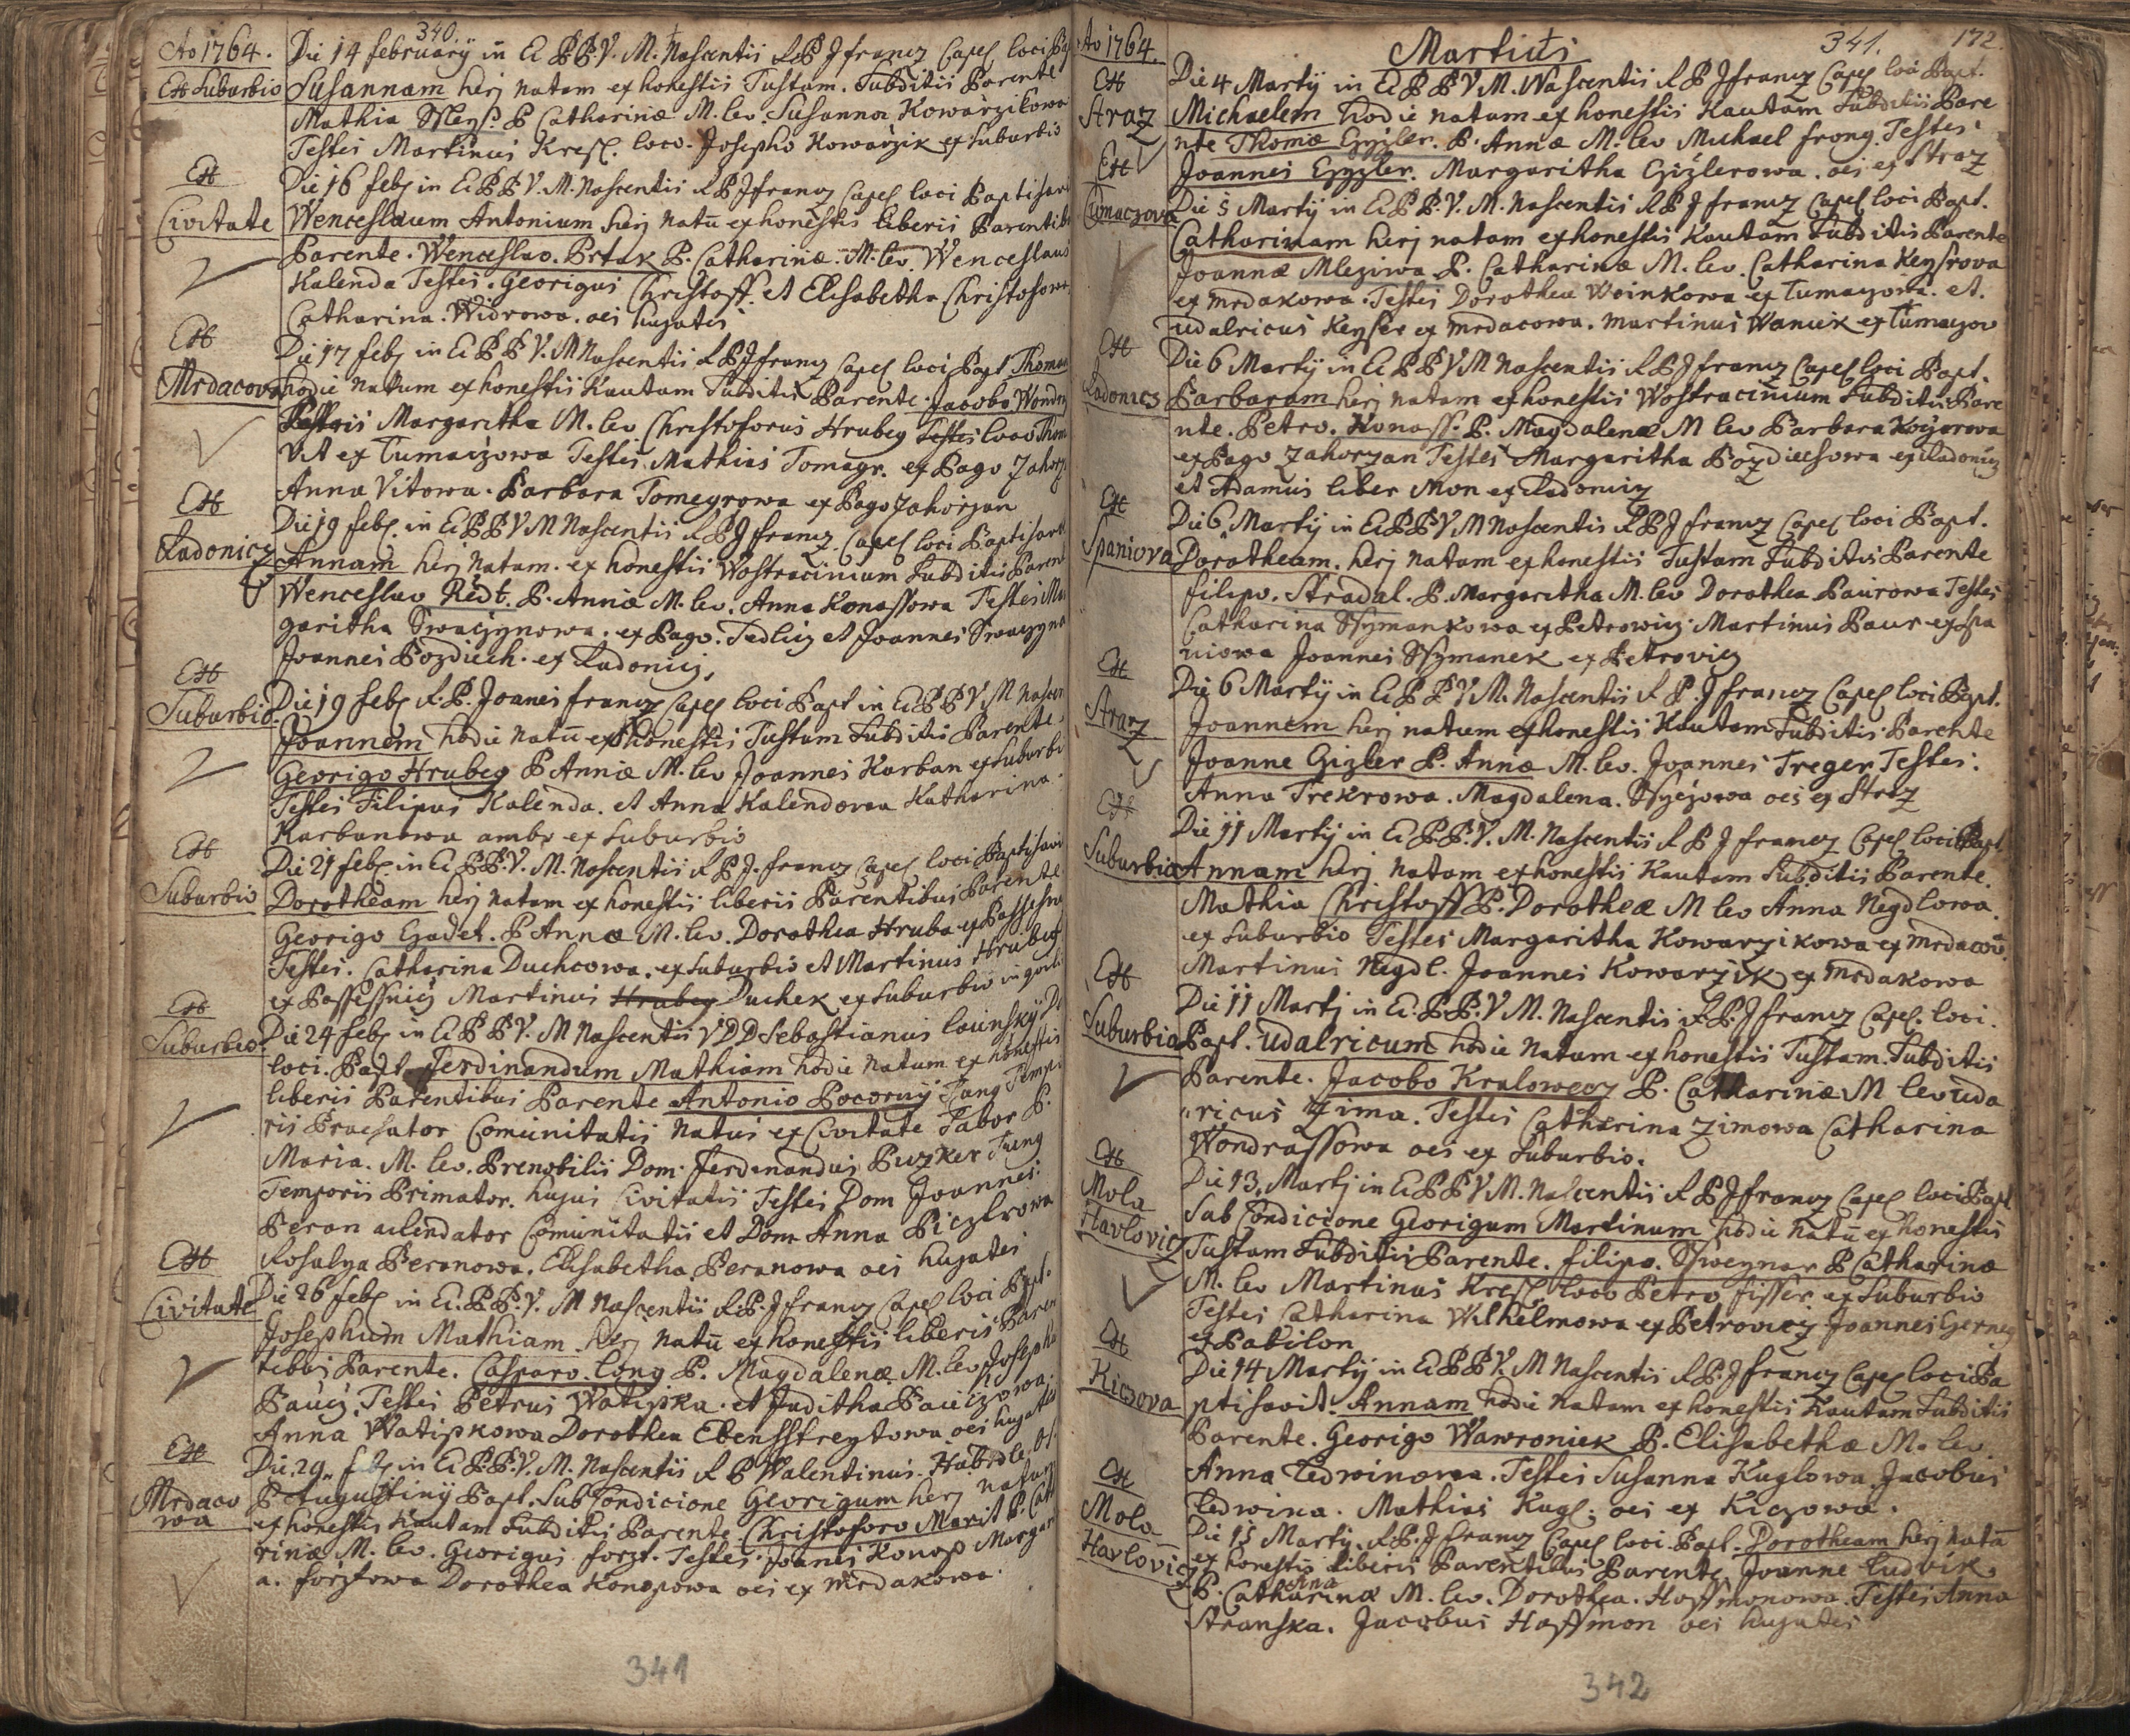 340.
Ao 1764.
Die 14 february in Ec B P V. M. Nascentis R P J francz Capel loci Ba
Ex Suburbio
Susannam herj natam ex honestis Tustam. Subditis Parente
Mathia P Catharinæ M. lev. Susanna Kowarzikowa
Testes Martinus Kresl. loco Josepho Kowarzik ex Suburbio
Ex
Civitate
Die 16 feb in Ec B P V. M. Nascentis R P J francz Capel loci Baptisavi
Wenceslaum Antonium herj natū ex honestis liberis Parentib
Parente. Wenceslao. Prtak P. Catharinæ. M. lev. Wenceslaus
Kalenda Testes. Georigus Christoff. et Elisabetha Christofowa
Catharina. Widrowa. oes hujates
Ex
Mrdacova
Die 17 feb in Ec B P V. M Nascentis R P J francz Capel loci Bapt Thomam
hodie natum ex honestis Kautam Subditis Parente. Jacobo Wondra
Margaritha M. lev Christoforus Hrubeg Testes loco Thom
Vit ex Tumaczowa Testes. Mathias Tomagr. ex Pago Zahorz
Anna Vitowa. Barbara Tomegrowa ex Pago Zahorzan
Ex
Radonicz
Die 19 feb. in Ec B P V M Nascentis R P J francz. Capel loci Baptisavit
Annam herj natam. ex honestis Wostracinium Subditis Paren
Wenceslao Redt. P. Annæ M. lev. Anna Konassowa Testes Mar
garitha Swaczynowa. ex Pago. Tedlicz et Joannes Swaczyna
Joannes Pozdiech. ex Radonicz.
Ex
Suburbio
Die 19 feb R. P. Joanes francz Capel loci Bapt in Ec B P V M Nascen
Joannem hodie natū ex honestis Tustam Subditis Parente.
Georigo Hrubeg P Annæ M. lev Joannes Karban ex Suburbi
Testes Filipus Kalenda. et Anna Kalendowa Katharina.
Karbanowa ambo ex Suburbio
Ex
Suburbio
Die 21 feb. in Ec B P V. M. Nascentis R P J. francz Capel loci Baptisavi
Dorotheam herj natam ex honestis liberis Parentibus Parente
Georigo Gadet. P Annæ M. lev. Dorothea Hruba ex Passesni
Testes. Catharina Duchcowa. ex Suburbio et Martinus Hrubeg
ex Passessnicz Martinus Hrubeg Duchek ex Suburbio
Ex
Suburbio
Die 24 feb in Ec B P V. M Nascentis V D D Sebastianus lounsky D
loci. Bapt. Ferdinandum Mathiam hodie natum ex honestis
liberis Parentibus Parente Antonio Pocorny Tung Tempo
ris Praefator Comunitatis Natus ex Civitate Tabor P.
Maria. M. lev. Prenobilis Dom. Ferdinandus Puzker Tung
Temporis Primator. hujus Civitatis Testes Dom Joannes
Peran arendator Comunitatis et Dom Anna Piczlrowa
Rosalya Peranowa. Elisabetha Peranowa oes hujates
Ex
Civitate
Die 26 feb in Ec. B. P. V. M Nascentis R. P. J francz Capel loci Bapt.
Josephum Mathiam herj natū ex honestis liberis Paren
tibus Parente. Casparo. long P. Magdalenæ. M. lev. Josephus
Paucz. Testes Petrus Watipka. et Juditha Pauczowa.
Anna Watipkowa Dorothea Ebensstreytowa oes hujates
Ex
Mrdaco
wa
Die 29 feb in Ec B. P. V. M. Nascentis R P Walentinus. Habrdle. O.
P Augustiny Bapt. Sub Condicione Georigum herj natum
ex honestis Kautam Subditis Parente Christoforo Marit P. Cath
rinæ M. lev. Georigus forzt. Testes. Joanes Konop Margar
a. forztowa Dorothea Konopowa oes ex Mrdakowa.
341
Ao 1764.
Martius
341.
172.
Ex
Straz
Die 4 Marty in Ec B P V M. Nascentis R P J francz Capel loci Bapt.
Michaelem hodie natum ex honestis Kautam Subditis Pare
nte Thomæ Gyzler. P. Annæ M. lev Michael frong. Testes.
Joannes Gyzler. Margaritha Gizlerowa. oes ex Straz
Ex
Tumaczova
Die 5 Marty in Ec B P. V. M. Nascentis R P J francz Capel loci Bapt.
Catharinam herj natam ex honestis Kautam Subditis Parente
Joannæ Mleziwa P. Catharinæ M. lev. Catharina Keysrova
ex Mrdakowa. Testes Dorothea Woinkowa ex Tumaczowa. et.
Udalricus Keyser ex Mrdacowa. Martinus Waniek ex Tumaczow
Ex
Radonicz
Die 6 Marty in Ec B P V M Nascentis R P J francz Capel loci Bapt.
Barbaram herj natam ex honestis Wostracinium Subditis Pare
nte. Petro. Konass. P. Magdalenæ M lev Barbara Koyarowa
ex Pago Zahorzan Testes Margaritha Pozdiechowa ex Radonicz
et Adamus liber Mon ex Radonicz
Ex
Spaniova
Die 6 Marty in Ec B P V M Nascentis R P J francz Capel loci Bapt.
Dorotheam. herj natam ex honestis Tustam Subditis Parente
filipo. Stradal. P. Margaritha M. lev Dorothea Paurowa Testes
Catharina Ssymankowa ex Petrowicz. Martinus Paur ex Spa
niowa Joannes Ssymanek ex Petrovicz
Ex
Straz
Die 6 Marty in Ec B P V M. Nascentis R P. J francz Capel loci Bapt.
Joannem herj natum ex honestis Kautam Subditis Parente
Joanne Gizler P. Annæ M. lev. Joannes Treger Testes:
Anna Trekrowa. Magdalena. oes ex Straz
Ex
Suburbio
Die 11 Marty in Ec B. P. V. M. Nascentis R P J francz Capel loci Bapt.
Annam herj natam ex honestis Kautam Subditis Parente.
Mathia Christoff P. Dorotheæ M lev Anna Negdlowa.
ex Suburbio Testes Margaritha Kowarzikowa ex Mrdacow.
Martinus Negdl. Joannes Kowarzik ex Mrdakowa
Ex
Suburbio
Die 11 Martj in Ec. B. P. V M. Nascentis R. P. J francz Capel. loci.
Bapt. Udalricum hodie natum ex honestis Tustam Subditis
Parente. Jacobo Kralowecz P. Catharinæ M lev Uda
ricus Zima. Testes Catharina Zimowa Catharina
Wondrassowa oes ex Suburbio.
Ex
Mola
Havlovicz
Die 13. Martj in Ec B P V M. Nascentis R P J francz Capel loci Bapt
Sub Condicione Georigum Martinum hodie natū ex honestis
Tustam Subditis Parente. filipo. Ssweynar P Catharinæ
M. lev Martinus Kresl loco Petro fisser ex Suburbio
Testes Catharina Wilhelmowa ex Petrovicz Joannes Gerneg
ex Pabilon
Ex
Kiczova
Die 14 Marty in Ec B P V. M Nascentis R. P. J francz Capel loci Ba
ptisavit. Annam hodie natam ex honestis Kautam Subditis
Parente. Georigo Wawroniek P. Elisabethæ M. lev.
Anna Ledwinowa. Testes Susanna Kuglowa. Jacobus
Ledwina. Mathias Kugl. oes ex Kiczowa.
Ex
Mola
Havlovicz
Die 15 Marty. R P. J francz Capel loci Bapt. Dorotheam herj natā
ex honestis liberis Parentibus Parente Joanne Ludvik
Ana
P. Catharinæ M. lev. Dorothea. Hoffmonowa. Testes Anna
Stranska. Jacobus Hoffmon oes hujates
342